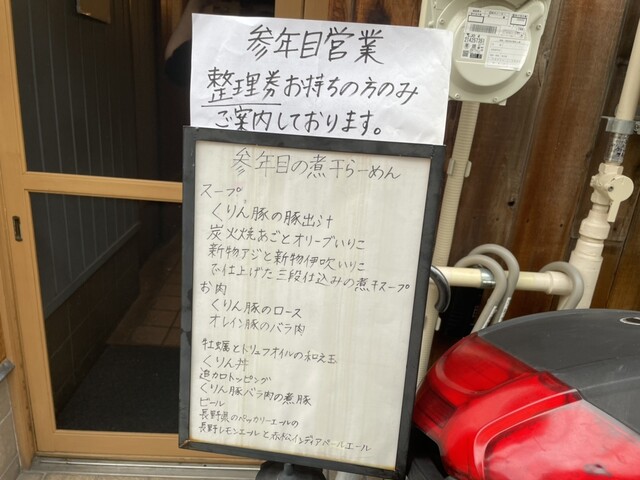 参年目営業
整理券お持ちの方のみ
ご案内しております。
参年目の煮干らーめん
スープ
くりん豚の豚出汁
炭火焼あごとオリーブいりこ
新物アジと新物伊吹いりこ
で仕上げた三段仕込みの煮干スープ
お肉
くりん豚のロース
オレイン豚のバラ肉
牡蠣とトリュフオイルの和え玉
くりん丼
追加トッピング
くりん豚バラ肉の煮豚
ビール
長野県のベッカリーエールの
長野レモンエールと赤松インディアペールエール